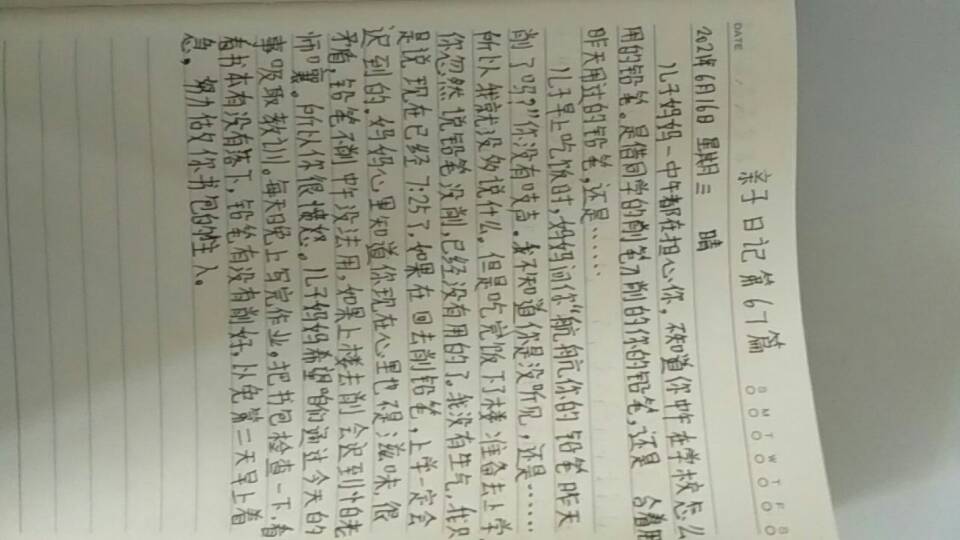 DATE
S M T W T F S
亲子日记第67篇
2021年6月16日 星期三 晴
儿子妈妈一中午都在担心你,不知道你中午在学校怎么
用的铅笔。是借同学的削笔刀削的你的铅笔,还是 合着用
昨天用过的铅笔,还是……
儿子早上吃饭时,妈妈问你“航航你的铅笔昨天
削了吗?”你没有吱声。我不知道你是没听见,还是……
所以我就没多说什么。但是吃完饭下了楼准备去上学
你忽然说铅笔没削,已经没有用的了。我没有生气,我只
是说现在已经7:25了,如果在回去削铅笔,上学一定会
迟到的。妈妈心里知道你现在心里也不是滋味,很
矛盾,铅笔不削中午没法用,如果上楼去削会迟到怕老
师嚷。所以你很愤怒。儿子妈妈希望咱们通过今天的
事吸取教训。每天晚上写完作业,把书包检查一下,看
看书本有没有落下,铅笔有没有削好,以免第二天早上着
急,努力估做你书包的主人。